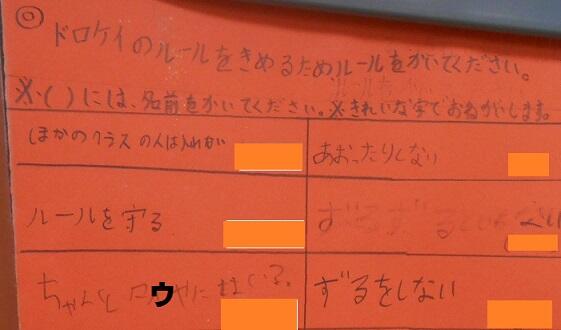 ◎ ドロケイのルールをきめるためルールをかいてください。
※( )には、名前をかいてください。※きれいな字でおねがいします。
ほかのクラスの人は
あおったりしない
ルールを守る
ずるずる
ちゃんと ウ
ずるをしない